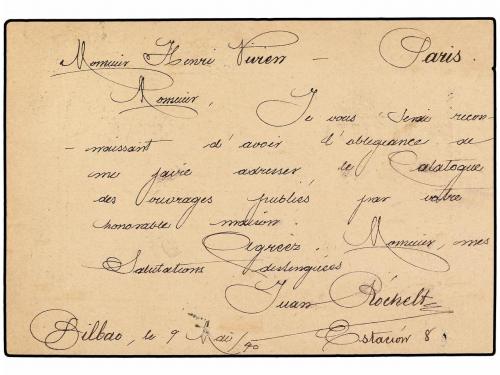 Monsieur Henri Vivien — Paris.
Monsieur, Je vous serai recon-
-naissant d'avoir l'obligeance de
me faire adresser le Catalogue
des ouvrages publiés par votre
honorable maison.
Agréez, Monsieur, mes
Salutations distinguées
Juan Róchelt
Bilbao, le 9 Mai/90 Estación 8